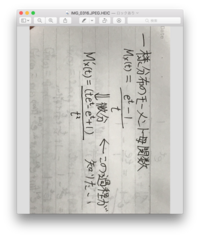 一様分布のモーメント母関数
Mx(t) = (e^t - 1) / t
↓微分 ← この過程が
知りたい
Mx(t) = (te^t - e^t + 1) / t^2